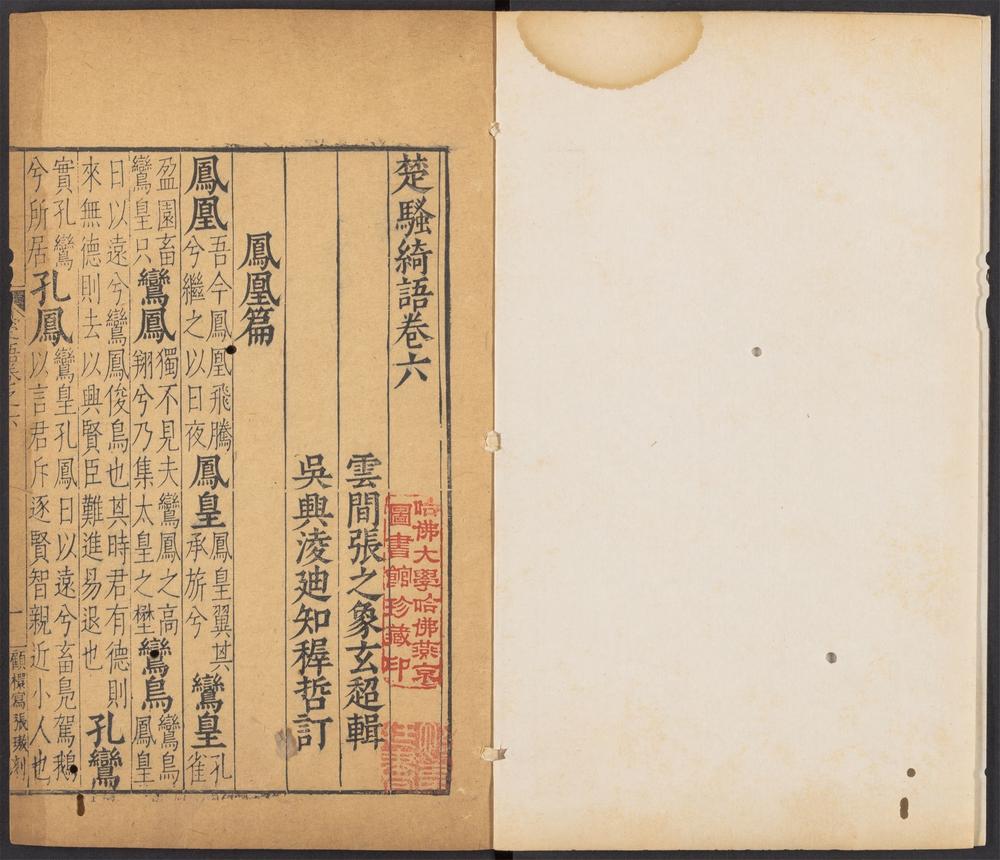 楚騷綺語卷六
雲間張之象玄超輯
吳興淩迪知稺哲訂
鳳凰篇
鳳凰吾今鳳凰飛騰兮繼之以日夜鳳皇鳳皇翼其承旂兮鸞皇孔雀
盈園畜鸞皇只鸞鳳獨不見夫鸞鳳之高翔兮乃集太皇之壄鸞鳥鸞鳥鳳皇
日以遠兮鸞鳳俊鳥也其時君有德則來無德則去以興賢臣難進易退也孔鸞
實孔鸞兮所居孔鳳鸞皇孔鳳日以遠兮畜鳧駕鵝以言君斥逐賢智親近小人也
語卷之六
一
顧寫張刻
哈佛大學哈佛燕京
圖書館珍藏印